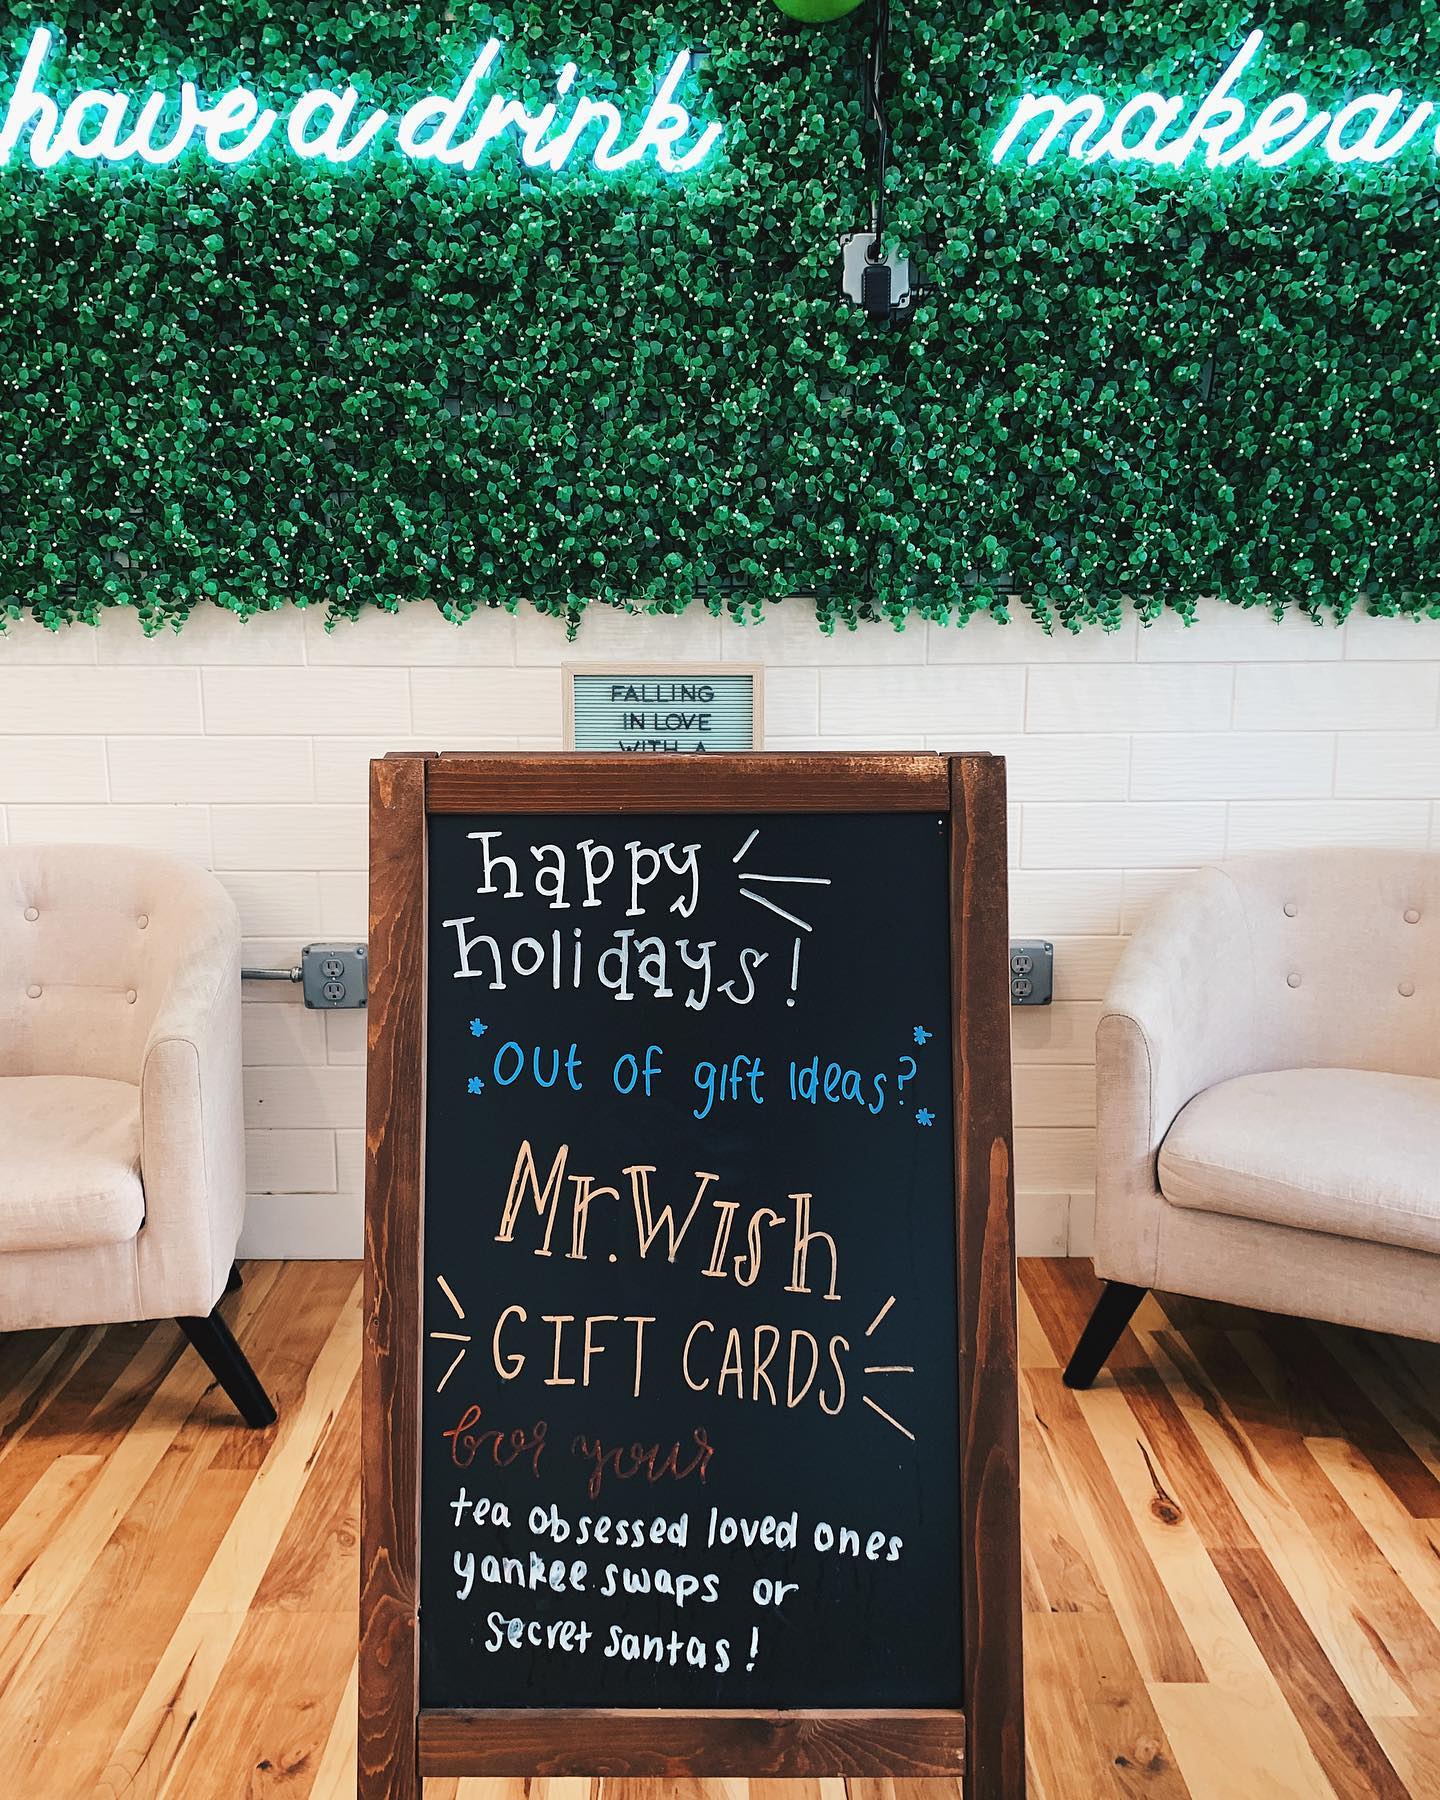 have a drink
make a
FALLING
IN LOVE
WITH A
happy
holidays!
out of gift ideas?
Mr. Wish
GIFT CARDS
for your
tea obsessed loved ones
yankee swaps or
secret santas!